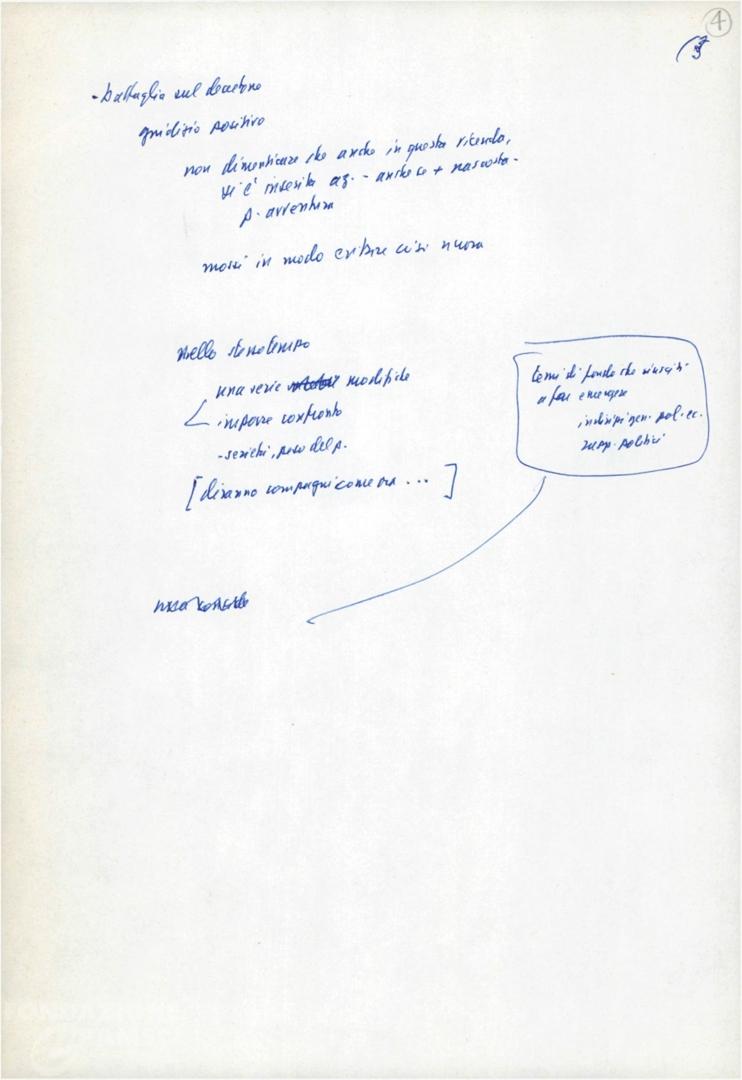 4
3
- battaglia sul decretone
giudizio positivo
non dimenticare che anche in questa vicenda,
si è inserita az. - anche se + nascosta -
p. avventura
mossi in modo evitare crisi nuova
nello stesso tempo
una serie modifiche
imporre confronto
- serietà, peso del p.
[diranno compagni come ora ... ]
temi di fondo che riusciti
a fare emergere
indirizzi gen. pol. ec.
rapp. politici